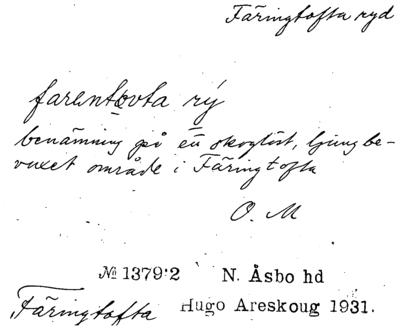 Färingtofta ryd
farentovta rý
benämning på en skoglöst, ljungbe-
vuxet område i Färingtofta
O. M
№ 1379:2 N. Åsbo hd
Färingtofta Hugo Areskoug 1931.